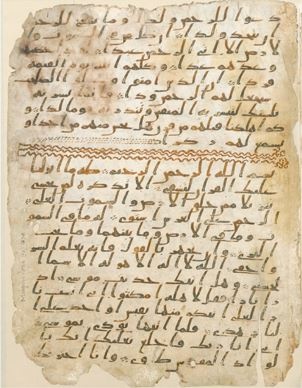 دعوا للرحمن ولدا وما ينبغي للرحمن
ان يتخذ ولدا ان كل من في السموت و
الارض الا اتي الرحمن عبدا لقد احصيهم
وعدهم عدا وكلهم اتيه يوم القيمة
فردا ان الذين امنوا وعملوا الصلحت
سيجعل لهم الرحمن ودا فانما يسرنه
بلسنك لتبشر به المتقين وتنذر به قوما لدا و
كم اهلكنا قبلهم من قرن هل تحس منهم من احد او
تسمع لهم ركزا
بسم الله الرحمن الرحيم طه ما انزلنا
عليك القرن لتشقى الا تذكرة لمن يخشى
تنزيلا ممن خلق الارض والسموت العلى
الرحمن على العرش استوى له ما في السموت
وما في الارض وما بينهما وما تحت
الثرى وان تجهر بالقول فانه يعلم السر
واخفى الله لا اله الا هو له الاسما ا
لحسنى وهل اتيك حديث موسى اذ
را نارا فقل لاهله امكثوا اني انست نا
را لعلي اتيكم منها بقبس او اجد على ا
لنار هدى فلما اتيها نودي يموسى
اني انا ربك فاخلع نعليك انك با
لواد المقدس طوى وانا اخترتك